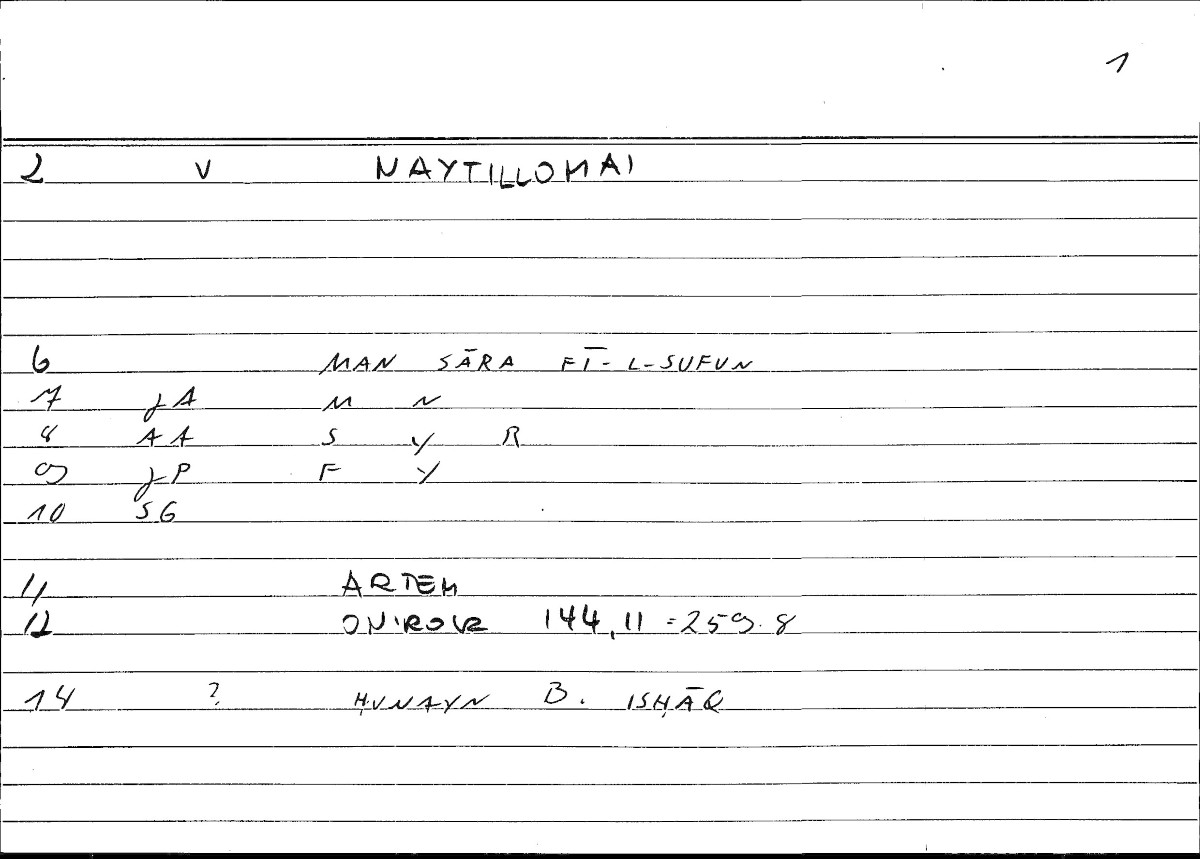 1
2 V NAYTILLOMAI
6 MAN SĀRA FĪ-L-SUFUN
7 JA M N
8 AA S Y R
9 JP F Y
10 SG
11 ARTEM
12 ONIROKR 144,11 =259.8
14 ? ḤUNAYN B. ISḤĀQ